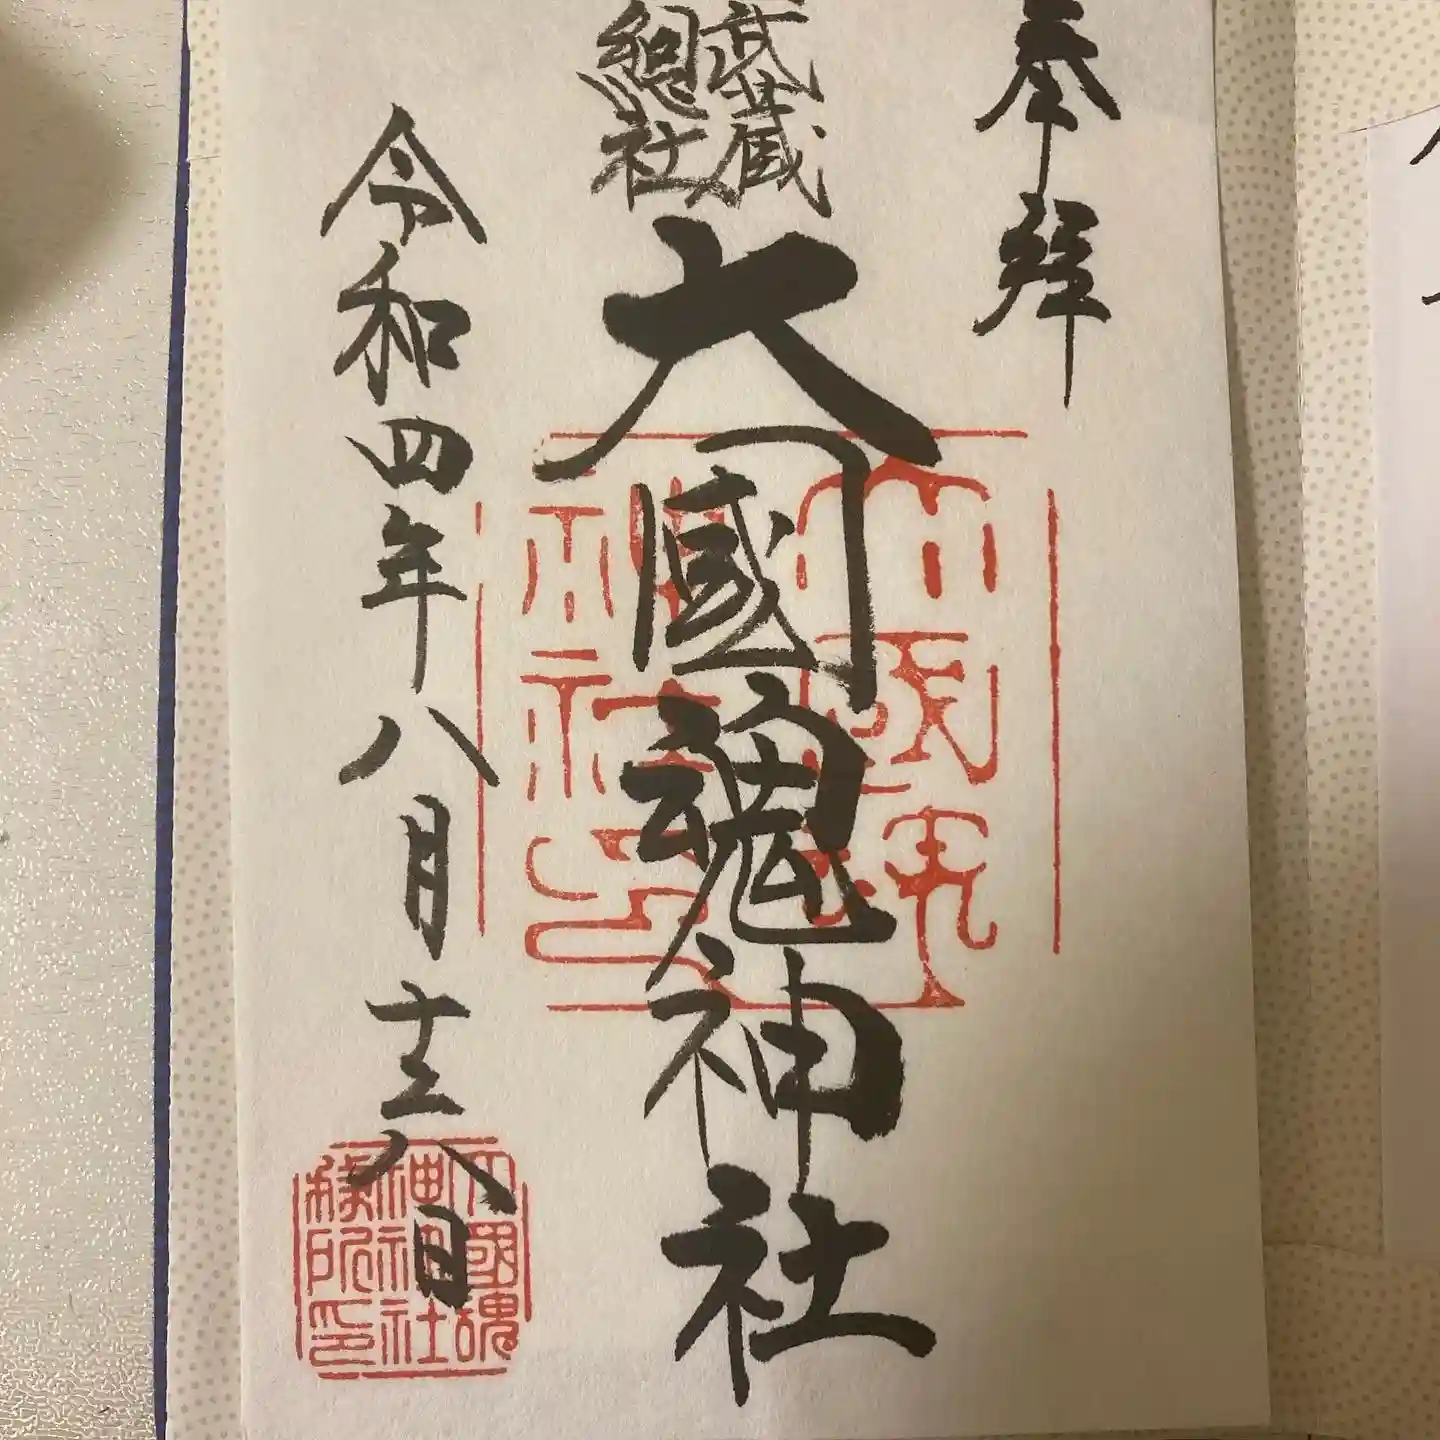 奉拝
武蔵
總社
大國魂神社
令和四年八月十六日
大國魂
神社印
大國魂
神社社
務所印